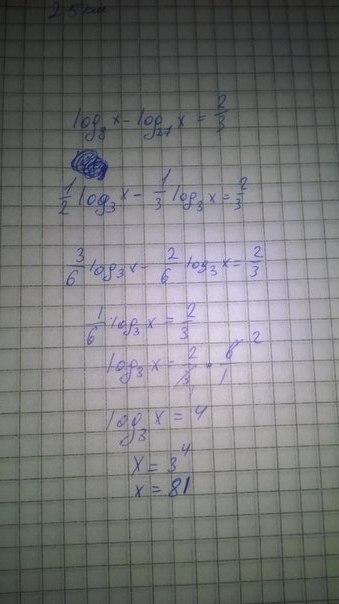 log₉ x - log₂₇ x = 2/3
1/2 log₃ x - 1/3 log₃ x = 2/3
3/6 log₃ x - 2/6 log₃ x = 2/3
1/6 log₃ x = 2/3
log₃ x = 2/3 * 6/1 2
log₃ x = 4
x = 3⁴
x = 81